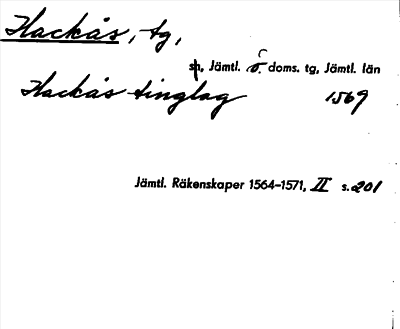 Hackås, tg,
sn, Jämtl. ö. doms. tg, Jämtl. län
Hackås tinglag 1569
Jämtl. Räkenskaper 1564-1571, II s. 201